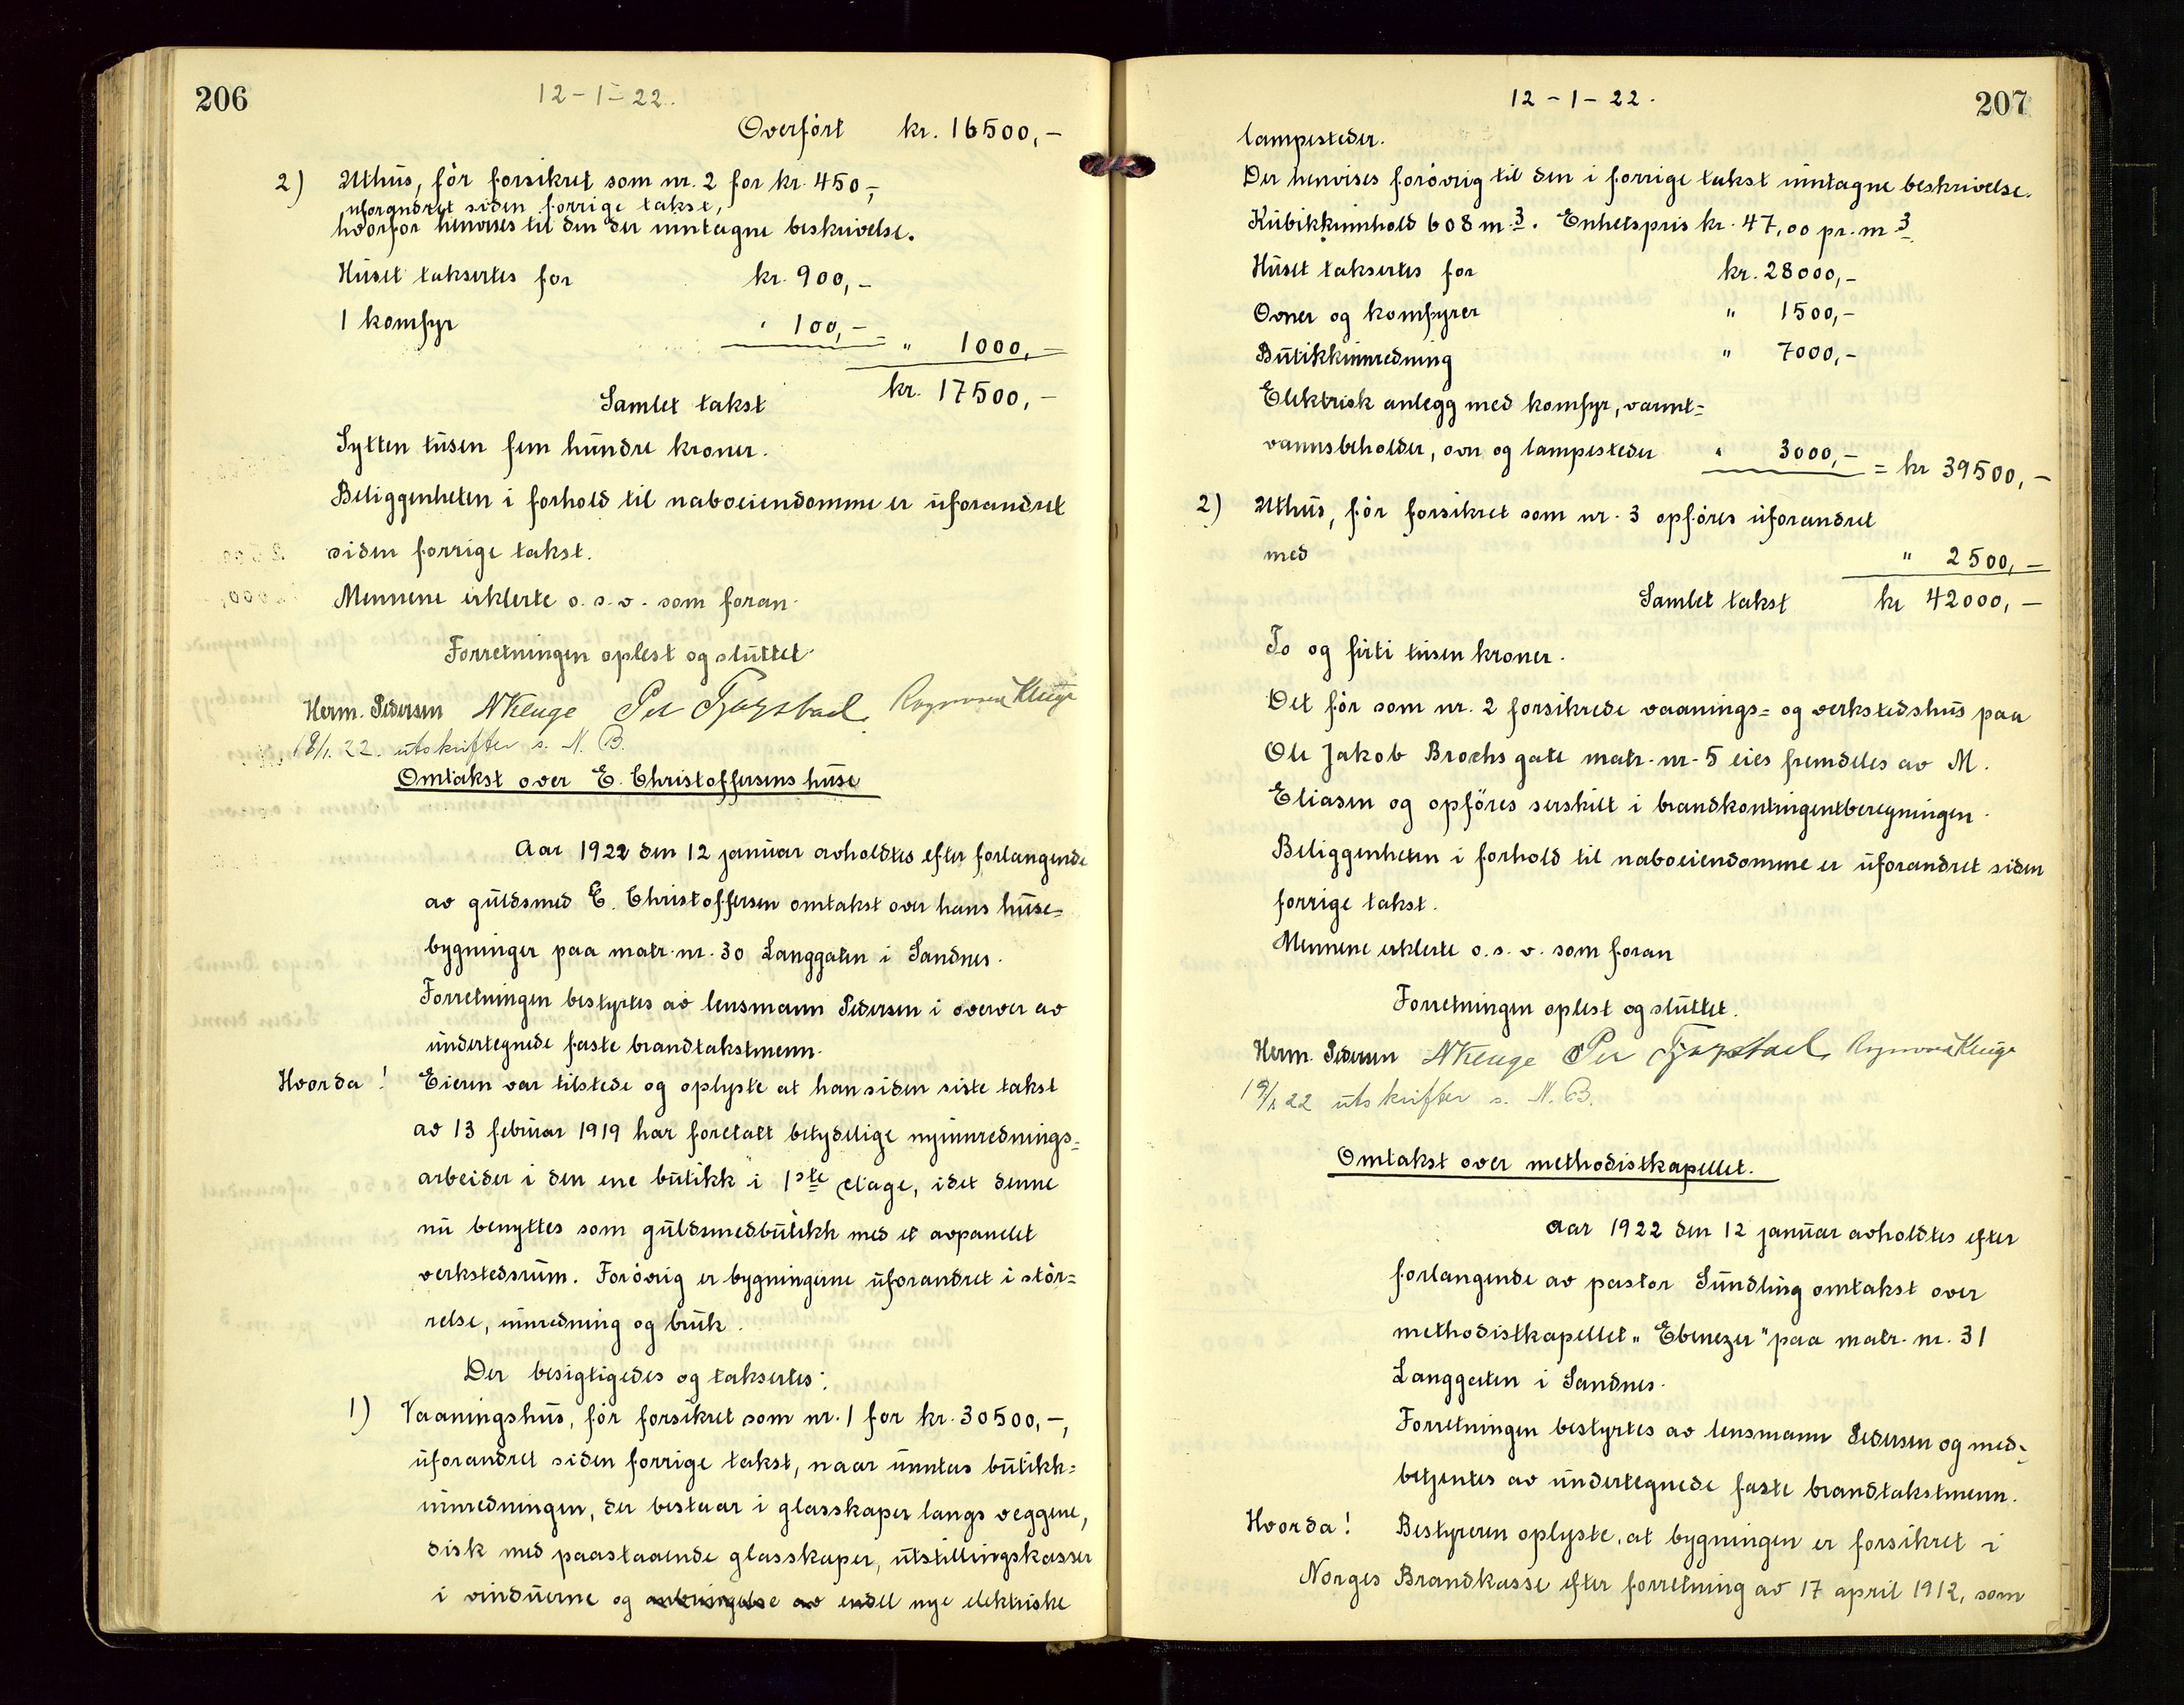 206
12-1-22.
Overført kr. 16500,-
2) Uthus, før forsikret som nr. 2 for kr. 450,-
uforandret siden forrige takst,
hvorfor henvises til den der inntagne beskrivelse.
Huset taksertes for kr. 900,-
1 komfyr " 100,- = " 1000,-
Samlet takst kr. 17500,-
Sytten tusen fem hundre kroner.
Beliggenheten i forhold til naboeiendomme er uforandret
siden forrige takst.
Mennene erklerte o.s.v. som foran.
Forretningen oplest og sluttet.
Herm. Pedersen
18/1.22. utskrifter s. N. B.
Omtakst over E. Christoffersens huse
Aar 1922 den 12 januar avholdtes efter forlangende
av guldsmed E. Christoffersen omtakst over hans huse=
bygninger paa matr. nr. 30 Langgaten i Sandnes.
Forretningen bestyrtes av lensmann Pedersen i overver av
undertegnede faste brandtakstmenn.
Hvorda! Eieren var tilstede og oplyste at han siden siste takst
av 13 februar 1919 har foretatt betydelige nyinnrednings=
arbeider i den ene butikk i 1ste etage, idet denne
nu benyttes som guldsmedbutikk med et avpanelet
verkstedsrum. Forøvrig er bygningerne uforandret i stør=
relse, innredning og bruk.
Der besigtigedes og taksertes:
1) Vaaningshus, før forsikret som nr. 1 for kr. 30500,-,
uforandret siden forrige takst, naar inntas butikk=
innredningen, der bestaar i glasskaper langs veggene,
disk med paastaaende glasskaper, utstillingskasser
i vinduerne og anbringelse av endel nye elektriske
207
12-1-22.
lampesteder.
Der henvises forøvrig til den i forrige takst inntagne beskrivelse.
Kubikkinnhold 608 m.3. Enhetspris kr. 47,00 pr. m3.
Huset taksertes for kr. 28000,-
Ovner og komfyrer " 1500,-
Butikkinnredning " 7000,-
Elektrisk anlegg med komfyr, varmt=
vannsbeholder, ovn og lampesteder " 3000,- = kr 39500,-
2) Uthus, før forsikret som nr. 3 opføres uforandret
med " 2500,-
Samlet takst kr 42000,-
To og firti tusen kroner.
Det før som nr. 2 forsikrede vaanings= og verkstedshus paa
Ole Jakob Brochs gate matr. nr. 5 eies fremdeles av M.
Eliasen og opføres serskilt i brandkontingentberegningen.
Beliggenheten i forhold til naboeiendomme er uforandret siden
forrige takst.
Mennene erklerte o.s.v. som foran
Forretningen oplest og sluttet.
Herm. Pedersen
19/1 22 utskrifter s. N. B.
Omtakst over methodistkapellet.
Aar 1922 den 12 januar avholdtes efter
forlangende av pastor Sundling omtakst over
methodistkapellet "Ebenezer" paa matr. nr. 31
Langgaten i Sandnes.
Forretningen bestyrtes av lensmann Pedersen og med=
betjentes av undertegnede faste brandtakstmenn.
Hvorda! Bestyreren oplyste, at bygningen er forsikret i
Norges Brandkasse efter forretning av 17 april 1912, som